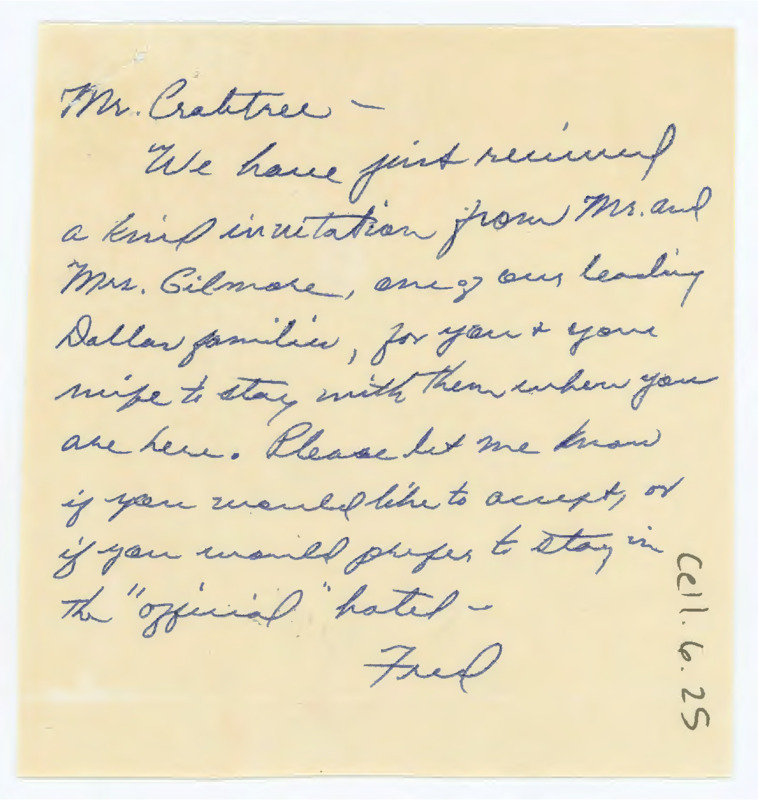 Mr. Crabtree –
We have just received
a kind invitation from Mr. and
Mrs. Gilmore, one of our leading
Dallas families, for you + your
wife to stay with them when you
are here. Please let me know
if you would like to accept, or
if you would prefer to stay in
the "official" hotel –
Fred
Cell. 6. 25